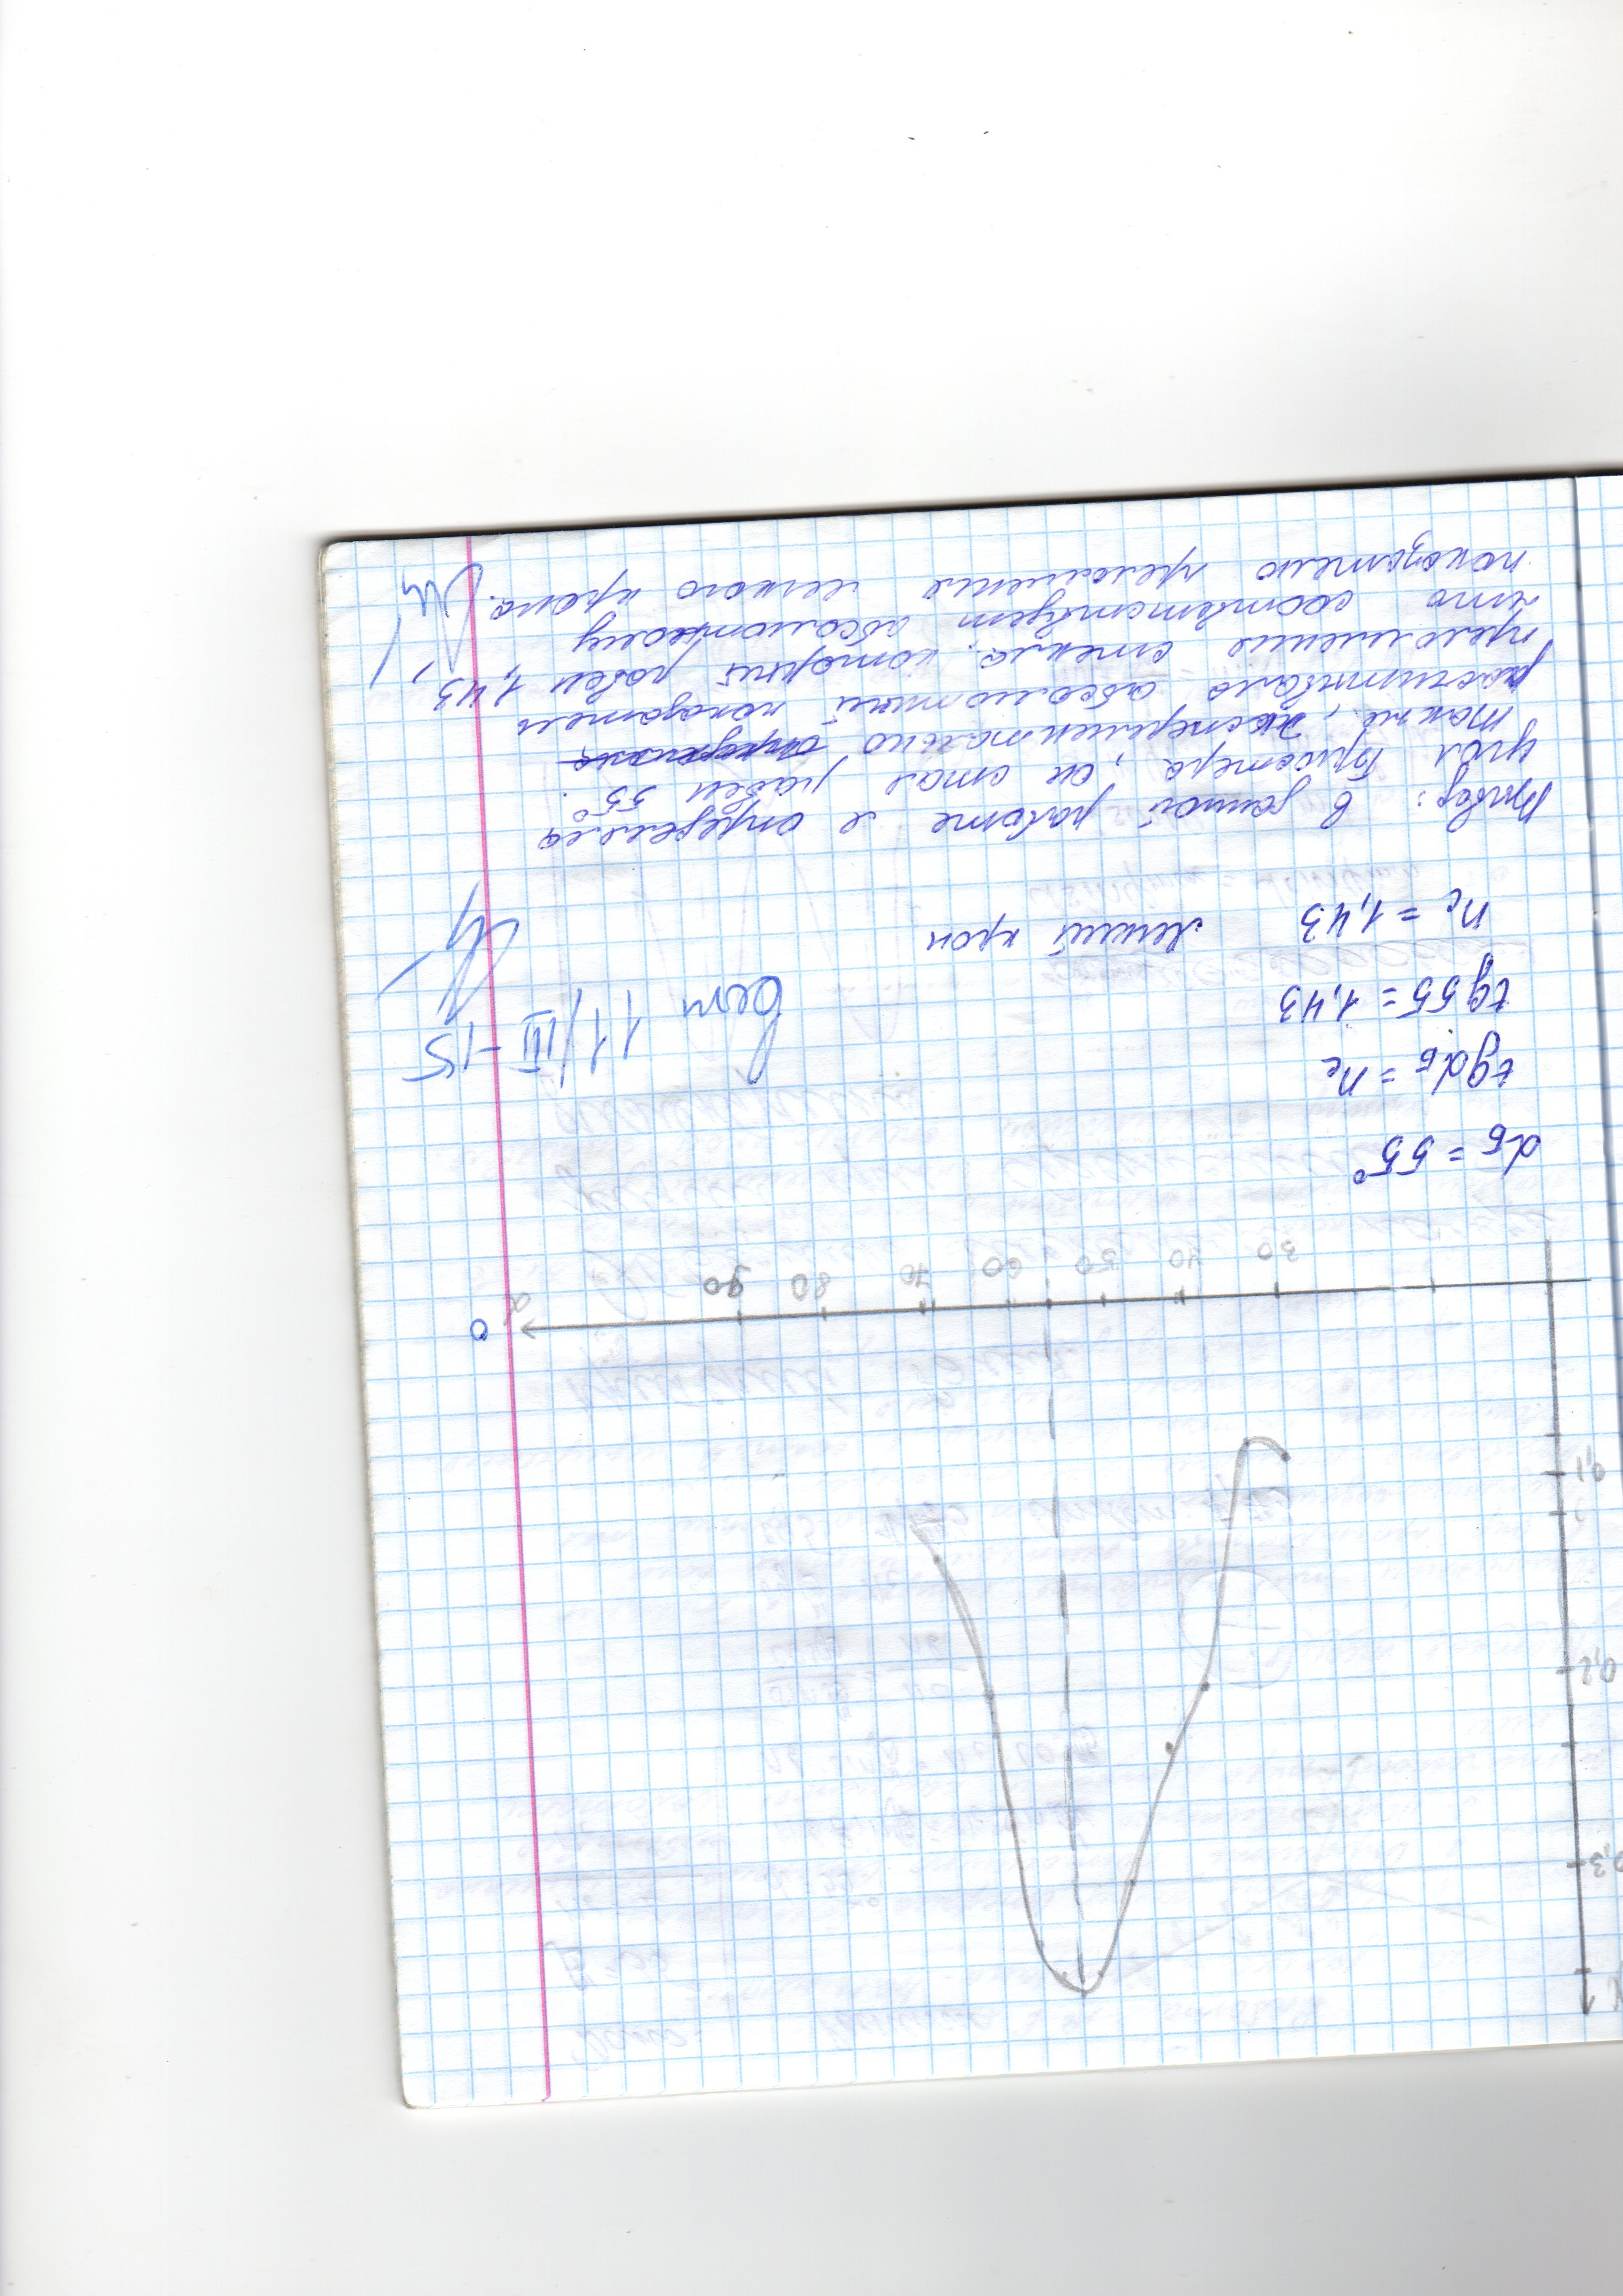 0,3
0,2
0,1
30 40 50 60 70 80 90
α °
α_Б = 55°
tgα_Б = n_c
tg 55 = 1,43
n_c = 1,43 легкий крон
11/III-15
Вывод: в данной работе я определяла
угол Брюстера, он стал равен 55°.
Также, экспериментально
расчитывала абсолютный показатель
преломления стекла, который равен 1,43,
что соответствует абсолютному
показателю преломления легкого крона.